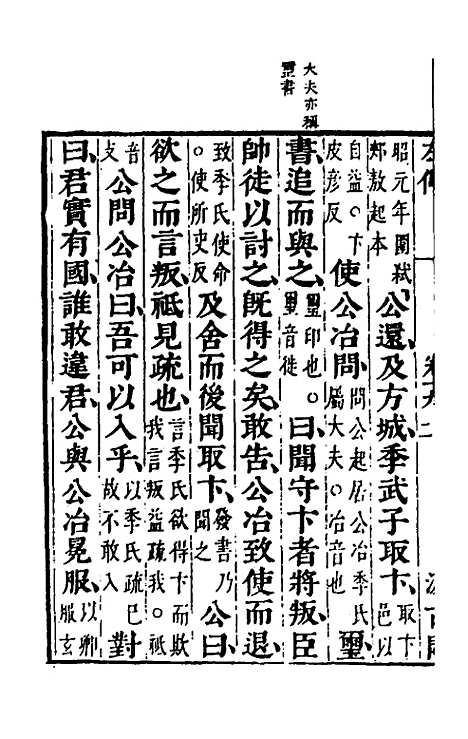 大夫亦稱
璽書
左傳
二
昭元年圍弒
郟敖起本
公還、及方城、季武子取卞、
取卞
邑以
自益〇卞
皮彥反
使公冶問、
問公起居公冶季氏
屬大夫〇冶音也
璽
書、追而與之、
璽印也〇
璽音徙
曰、聞守卞者將叛、臣
帥徒以討之、既得之矣、敢告、公冶致使而退、
致季氏使命
〇使所吏反
及舍而後聞取卞、
發書乃
聞之
公曰、
欲之而言叛、祗見疏也、
言季氏欲得卞而欺
我言叛益疏我〇祗
音
支
公問公冶曰、吾可以入乎、
以季氏疏己
故不敢入
對
曰、君實有國、誰敢違君、公與公冶冕服、
以卿
服玄